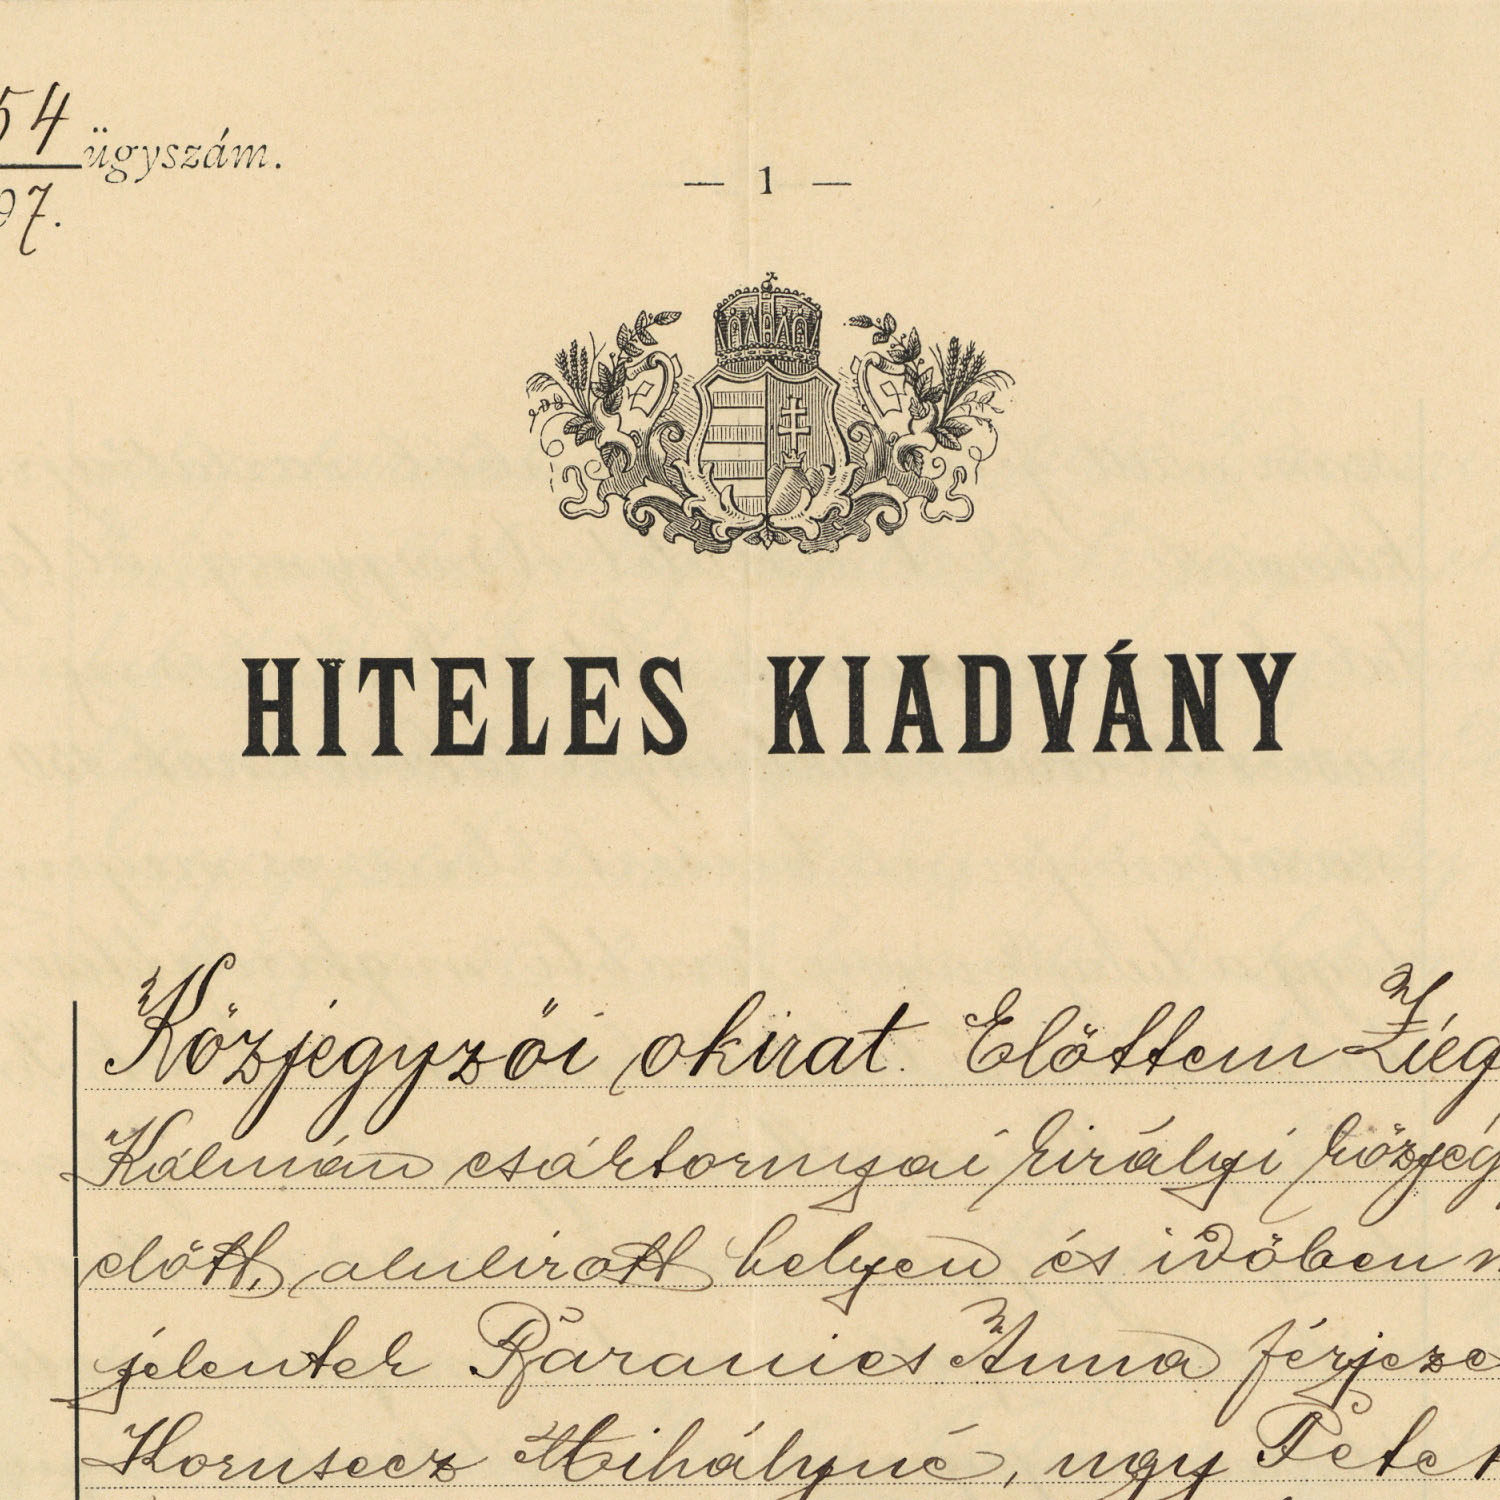 54 ügyszám.
97.
— 1 —
HITELES KIADVÁNY
Közjegyzői okirat. Előttem Zieg
Kálmán csáktornyai királyi közjeg
előtt, alulirott helyen és időben m
jelentek Baranics Anna férjeze
Kornsecz Mihályné, ugy Petek